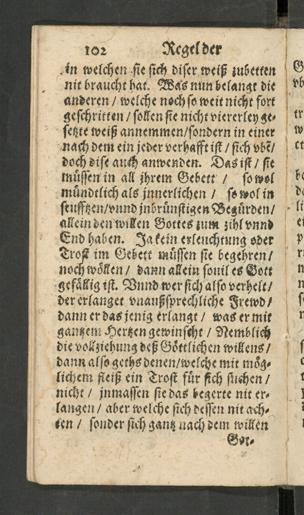 102 Regel der
in welchen sie sich diser weiß zubetten
nit braucht hat. Was nun belangt die
anderen / welche noch so weit nicht fort
geschritten / sollen sie nicht viererley ge-
setzte weiß annemmen / sondern in einer
nach dem ein jeder verhafft ist / sich vbẽ /
doch dise auch anwenden. Das ist / sie
müssen in all jhrem Gebett / so wol
mündtlich als jnnerlichen / so wol in
seufftzen / vnnd jnbrünstigen Begürden /
allein den willen Gottes zum zihl vnnd
End haben. Ja kein erleuchtung oder
Trost im Gebett müssen sie begehren /
noch wöllen / dann allein souil es Gott
gefällig ist. Vnnd wer sich also verhelt /
der erlanget vnaußsprechliche Frewd /
dann er das jenig erlangt / was er mit
gantzem Hertzen gewinscht / Nemblich
die vollziehung deß Göttlichen willens /
dann also geths denen / welche mit mög-
lichem fleiß ein Trost für sich suchen /
nicht / jnmassen sie das begerte nit er-
langen / aber welche sich dessen nit ach-
ten / sonder sich gantz nach dem willen